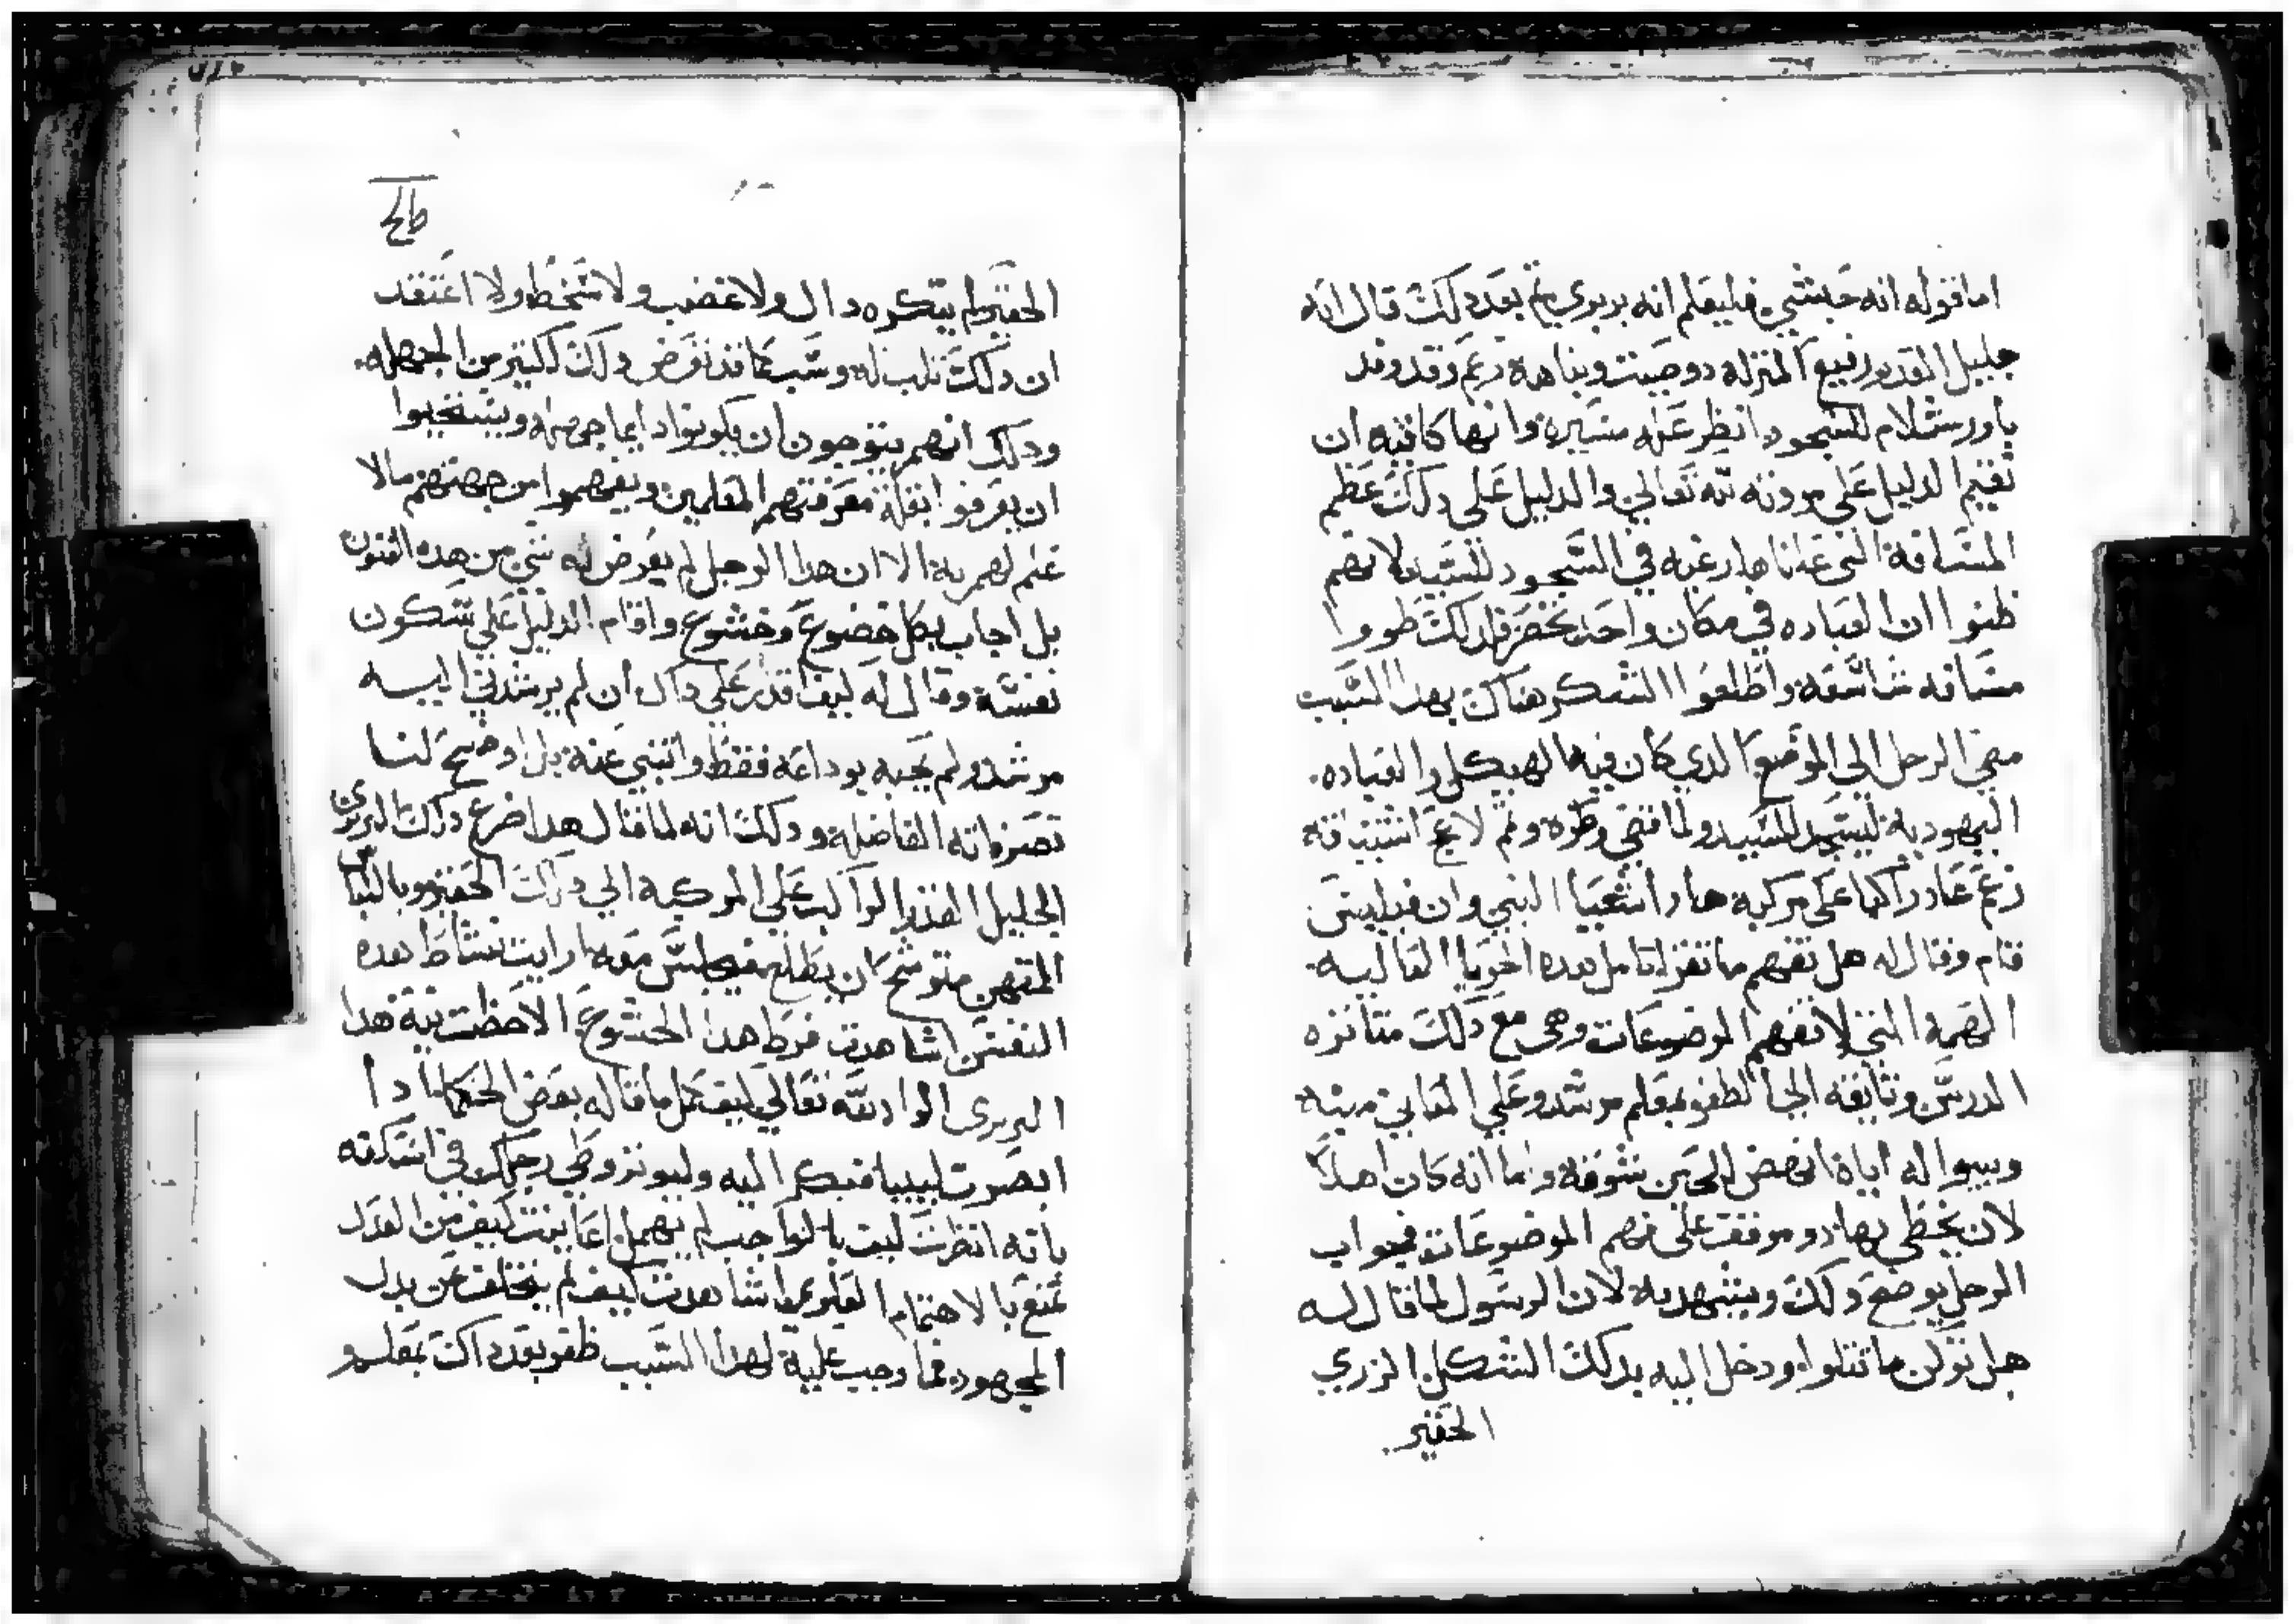 اما قوله انه حبشي فليعلم انه بربري ثم بعد دلك قال انه
جليل القدر رفيع المنزله دو صيت ونباهه زعم وقد وفد
باورشلام للسجود انظر عله مسيره وانها كافيه ان
تقيم الدليل على مودته لله تعالي والدليل علي دلك عظم
المسافة التي عاناها رغبه في السجود للسيد لانهم
ظنوا ان العباده في مكان واحد تخص فلدلك طووا
مسافه شاسعه واطلعوا الشكر هناك بهدا السبب
مضي الرجل الي الموضع الدي كان فيه الهيكل والعباده
اليهوديه ليسجد للسيد ولما قضي وطره وتم لاعج اشتياقه
زعم عاد راكبا على مركبه هاد اشعيا النبي وان فيلبس
قام وقال له هل تفهم ما تقرا تامل هده الحريا العاليه
الهمه التي لا تفهم الموضوعات وهي مع دلك مثابره
الدرس وتايقه الي الظفر بمعلم مرشد وعلي المعاني منبه
وبينوا له اياه انهض الحين شوقه واما انه كان اهلا
لان يخظي بهادو موفقف علي فهم الموضوعات فجواب
الرجل يوضح دلك ويشهد به لان الرسول لما قال له
هل تولن ما تتلوا ودخل اليه بدلك الشكل الزري
الحقير
الحقير لم يتكره داك ولا غضب ولا سخط ولا اعتقد
ان دلك تلب له وسب كما قد تعرض دلك لكثير من الجهله
ودلك انهم يتوجون ان يكونوا دايما جهله ويستخبوا
ان يعرفوا بقلة معرفتهم المعلمين ويفهموا من جهتهم مالا
علم لهم به الا ان هدا الرجل لم يعرض له شي من هده الفنون
بل اجاب بكل خضوع وخشوع واقام الدليل علي سكون
نفسه وقال له ليف اقدر علي داك ان لم يرشدني اليه
مرشد ولم يجبه بوداعه فقظ وانثني عنه بل اوضح لنا
تصرفاته الفاضله ودلك انه لما قال هدا ضرع داك البربري
الجليل القدر الراكب علي المركبه الي دلك الحقير وبالثياب
المهين متوشح ان يطلع فيجلس معه ارايت نشاط هده
النفس اشاهدت فرط هدا الخشوع الاحظت نية هدا
البربري الواد لله تعالي ليف كمل ما قاله بعض الحكما ادا
ابصرت لبيبا فبكر اليه وليوتر وطي رجلك في اسكفته
بانه انظرت ليف بالواجب لم يهمل اعاينت كيف من العدل
تمتع بالاهتمام العلو بما شاهدت كيف لم يتخلف عن بدل
المجهود فيما وجب عليه لهدا السبب ظفر بعد داك بمعلم